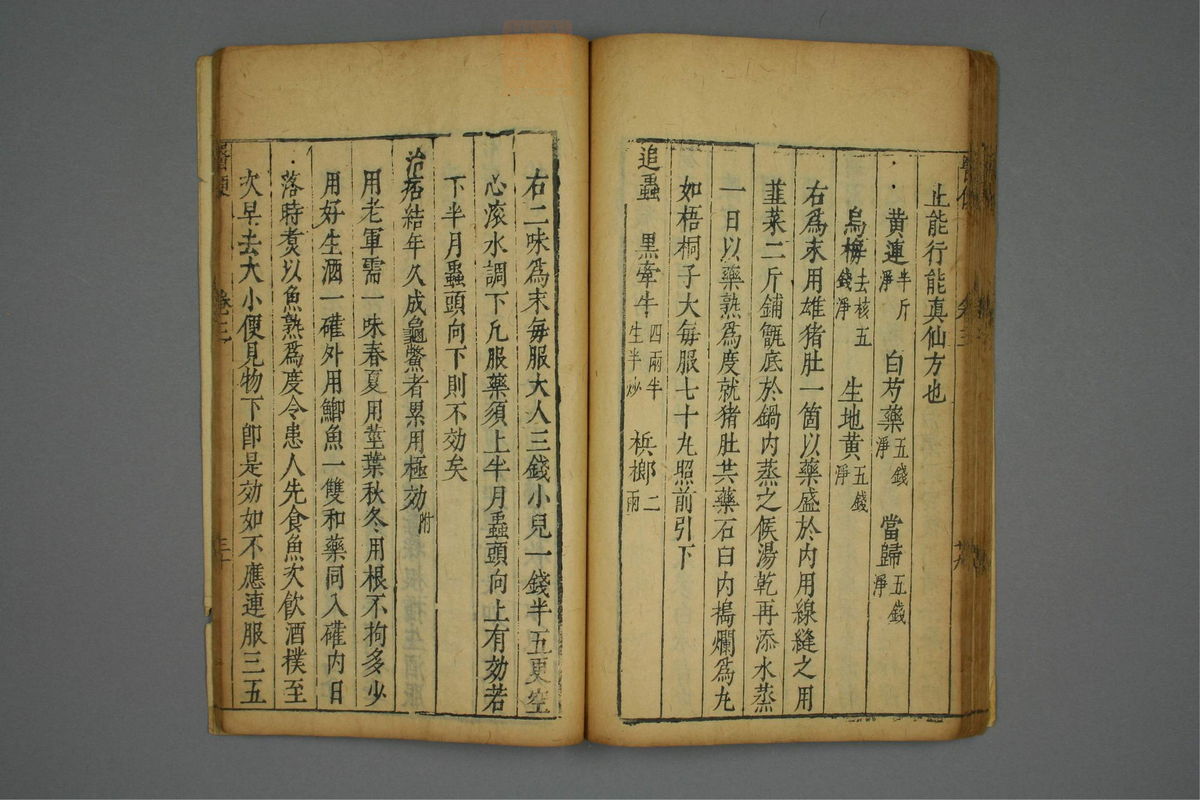 止能行能真仙方也
黄連半斤淨 白芍藥五錢淨 當歸五錢淨
烏梅去核五錢淨 生地黄五錢淨
右爲末用雄猪肚一箇以藥盛於內用線縫之用
韮菜二斤鋪甑底於鍋內蒸之候湯乾再添水蒸
一日以藥熟爲度就猪肚共藥石臼內搗爛爲丸
如梧桐子大每服七十丸照前引下
追蟲 黒牽牛四兩半生半炒 梹榔二兩
右二味爲末每服大人三錢小兒一錢半五更空
心滚水調下凡服藥須上半月蟲頭向上有効若
下半月蟲頭向下則不効矣
治痞結年久成龜鱉者累用極効附
用老軍需一味春夏用莖葉秋冬用根不拘多少
用好生酒一確外用鯽魚一雙和藥同入確內日
落時煮以魚熟爲度令患人先食魚次飲酒撲至
次早去大小便見物下卽是効如不應連服三五
卷三
三十